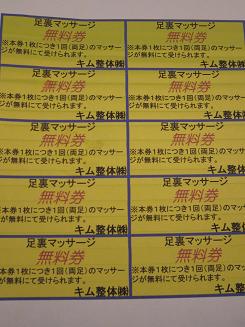 足裏マッサージ
無料券
※本券1枚につき1回(両足)のマッサー
ジが無料にて受けられます。
キム整体㈱
足裏マッサージ
無料券
※本券1枚につき1回(両足)のマッサー
ジが無料にて受けられます。
キム整体㈱
足裏マッサージ
無料券
※本券1枚につき1回(両足)のマッサー
ジが無料にて受けられます。
キム整体㈱
足裏マッサージ
無料券
※本券1枚につき1回(両足)のマッサー
ジが無料にて受けられます。
キム整体㈱
足裏マッサージ
無料券
※本券1枚につき1回(両足)のマッサー
ジが無料にて受けられます。
キム整体㈱
足裏マッサージ
無料券
※本券1枚につき1回(両足)のマッサー
ジが無料にて受けられます。
キム整体㈱
足裏マッサージ
無料券
※本券1枚につき1回(両足)のマッサー
ジが無料にて受けられます。
キム整体㈱
足裏マッサージ
無料券
※本券1枚につき1回(両足)のマッサー
ジが無料にて受けられます。
キム整体㈱
足裏マッサージ
無料券
※本券1枚につき1回(両足)のマッサー
ジが無料にて受けられます。
キム整体㈱
足裏マッサージ
無料券
※本券1枚につき1回(両足)のマッサー
ジが無料にて受けられます。
キム整体㈱